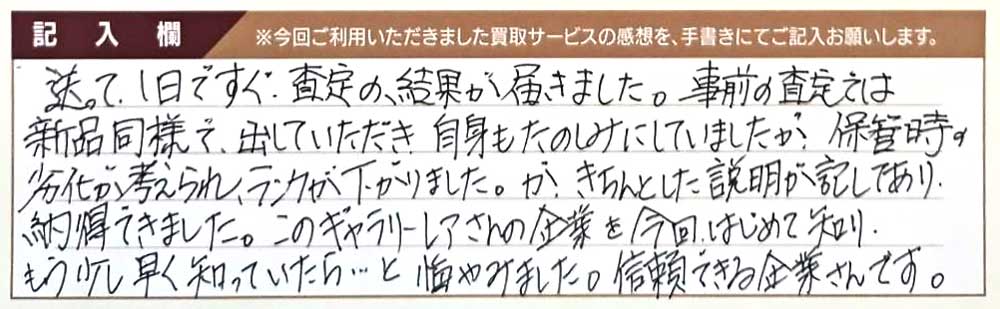 記入欄
※今回ご利用いただきました買取サービスの感想を、手書きにてご記入お願いします。
送って、1日ですぐ、査定の、結果が届きました。事前の査定では
新品同様で、出していただき、自身もたのしみにしていましたが、保管時の
劣化が考えられ、ランクが下がりました。が、きちんとした説明が記してあり、
納得できました。このギャラリーレアさんの企業を今回、はじめて知り、
もう少し早く知っていたら…と悔やみました。信頼できる企業さんです。